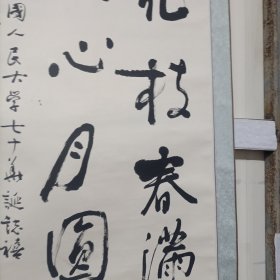 枝春滿
心月圓
國人民大学七十華誕誌禧